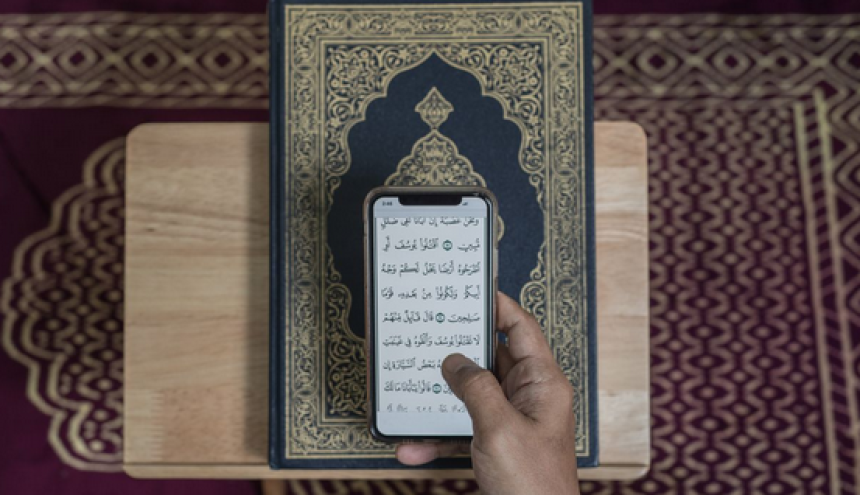 وَنَحْنُ عُصْبَةٌ إِنَّ أَبَانَا لَفِى ضَلَـٰلٍ
مُّبِينٍ ٱقْتُلُوا۟ يُوسُفَ أَوِ
ٱطْرَحُوهُ أَرْضًا يَخْلُ لَكُمْ وَجْهُ
أَبِيكُمْ وَتَكُونُوا۟ مِنۢ بَعْدِهِۦ قَوْمًا
صَـٰلِحِينَ قَالَ قَآئِلٌ مِّنْهُمْ
لَا تَقْتُلُوا۟ يُوسُفَ وَأَلْقُوهُ فِى غَيَـٰبَتِ
بَعْضُ ٱلسَّيَّارَةِ إِن
قَالُوا۟ يَـٰٓأَبَانَا مَا لَكَ